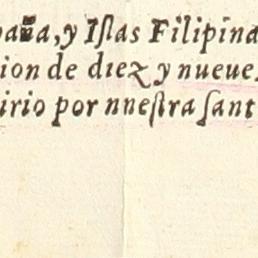 paña, y Iſlas Filipina
ion de diez y nueue
irio por nneſtra ſant